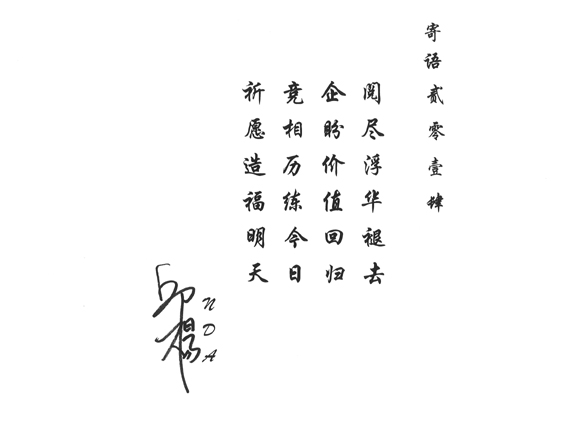 寄语贰零壹肆
阅尽浮华褪去
企盼价值回归
竞相历练今日
祈愿造福明天
邱楊
NDA